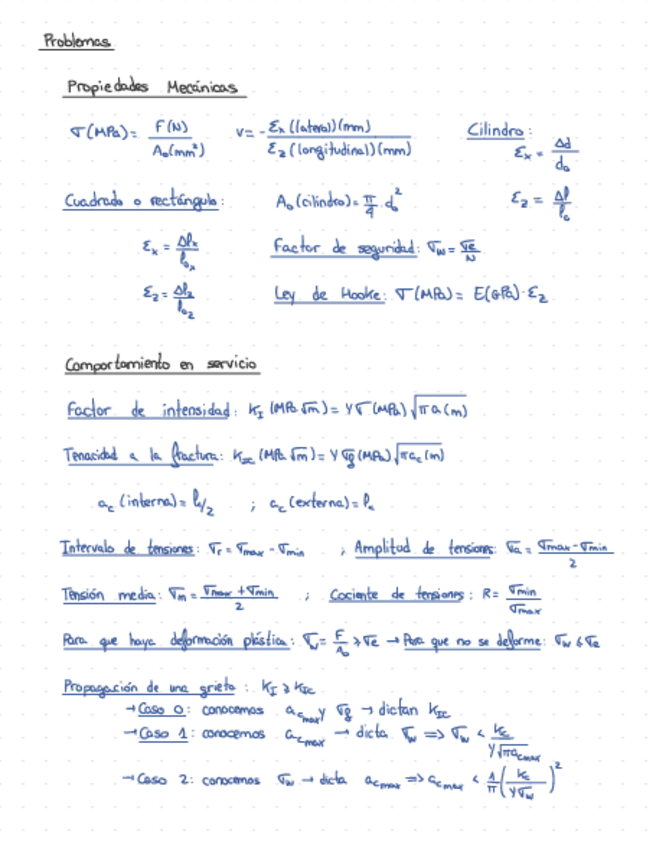 Problemas
Propiedades Mecánicas
σ(MPa) = F(N) / A₀(mm²)    ν = - εx (lateral)(mm) / εz (longitudinal)(mm)    Cilindro: εx = Δd / d₀
Cuadrado o rectángulo:    A₀ (cilindro) = π/4 · d₀²    εz = Δl / l₀
εx = Δlx / l₀x    Factor de seguridad: σw = σe / N
εz = Δlz / l₀z    Ley de Hooke: σ(MPa) = E(GPa) · εz
Comportamiento en servicio
Factor de intensidad: KI (MPa √m) = Y σ (MPa) √π a (m)
Tenacidad a la fractura: KIC (MPa √m) = Y σf (MPa) √π ac (m)
ac (interna) = l/2 ; ac (externa) = l
Intervalo de tensiones: σr = σmax - σmin ; Amplitud de tensiones: σa = σmax - σmin / 2
Tensión media: σm = σmax + σmin / 2 ; Cociente de tensiones: R = σmin / σmax
Para que haya deformación plástica: σ = F / A₀ ≥ σe → Para que no se deforme: σw ≤ σe
Propagación de una grieta: KI ≥ KIC
→ Caso 0: conocemos acmax y σf → dictan KIC
→ Caso 1: conocemos acmax → dicta σw ⇒ σw < Kc / Y√πacmax
→ Caso 2: conocemos σw → dicta acmax ⇒ acmax < 1/π (Kc / Yσw)²